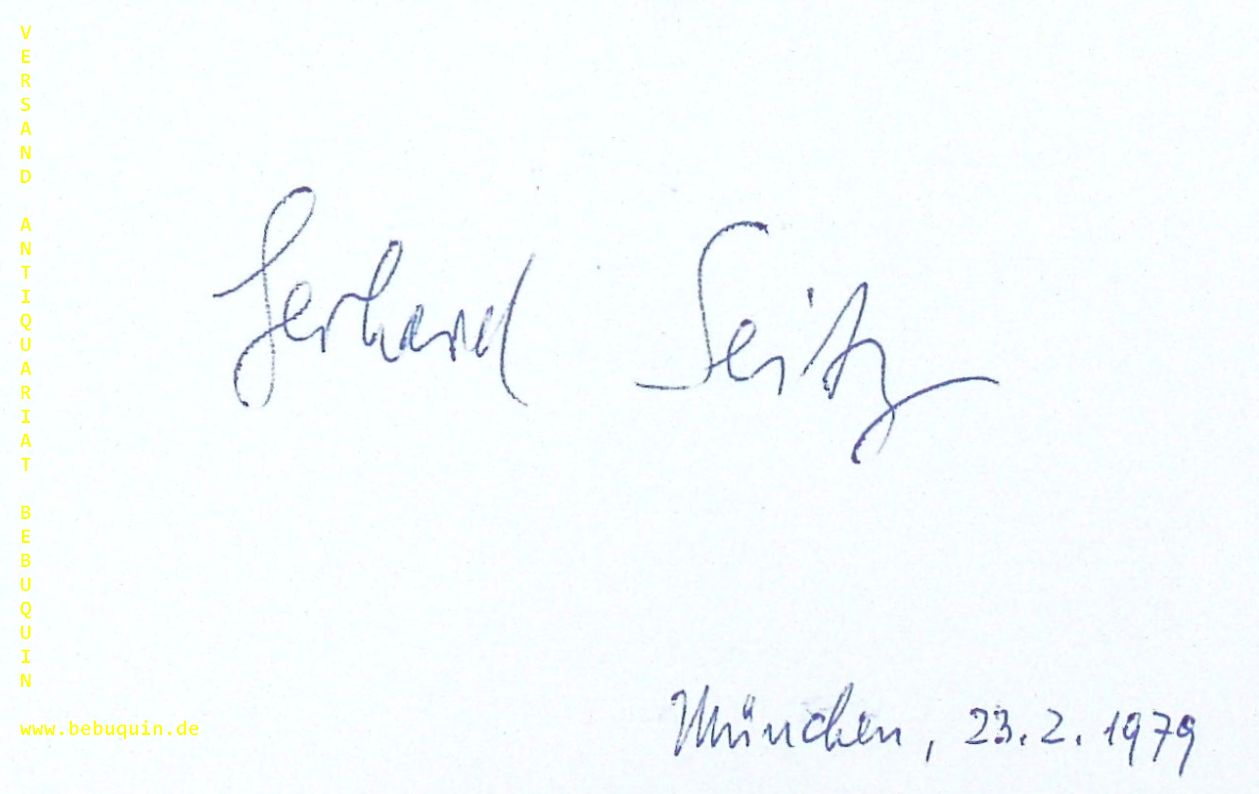 VERSAND ANTIQUARIAT BEBUQUIN
Gerhard Seitz
München, 23.2.1979
www.bebuquin.de